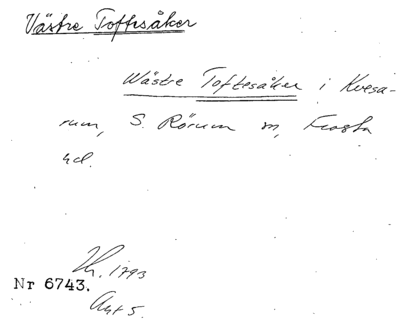 Västre Toftesåker
Wästre Toftesåker i Kvesa-
rum, S. Rörum sn, Frosta
hd.
Kr. 1793
Nr 6743.
Akt 5.